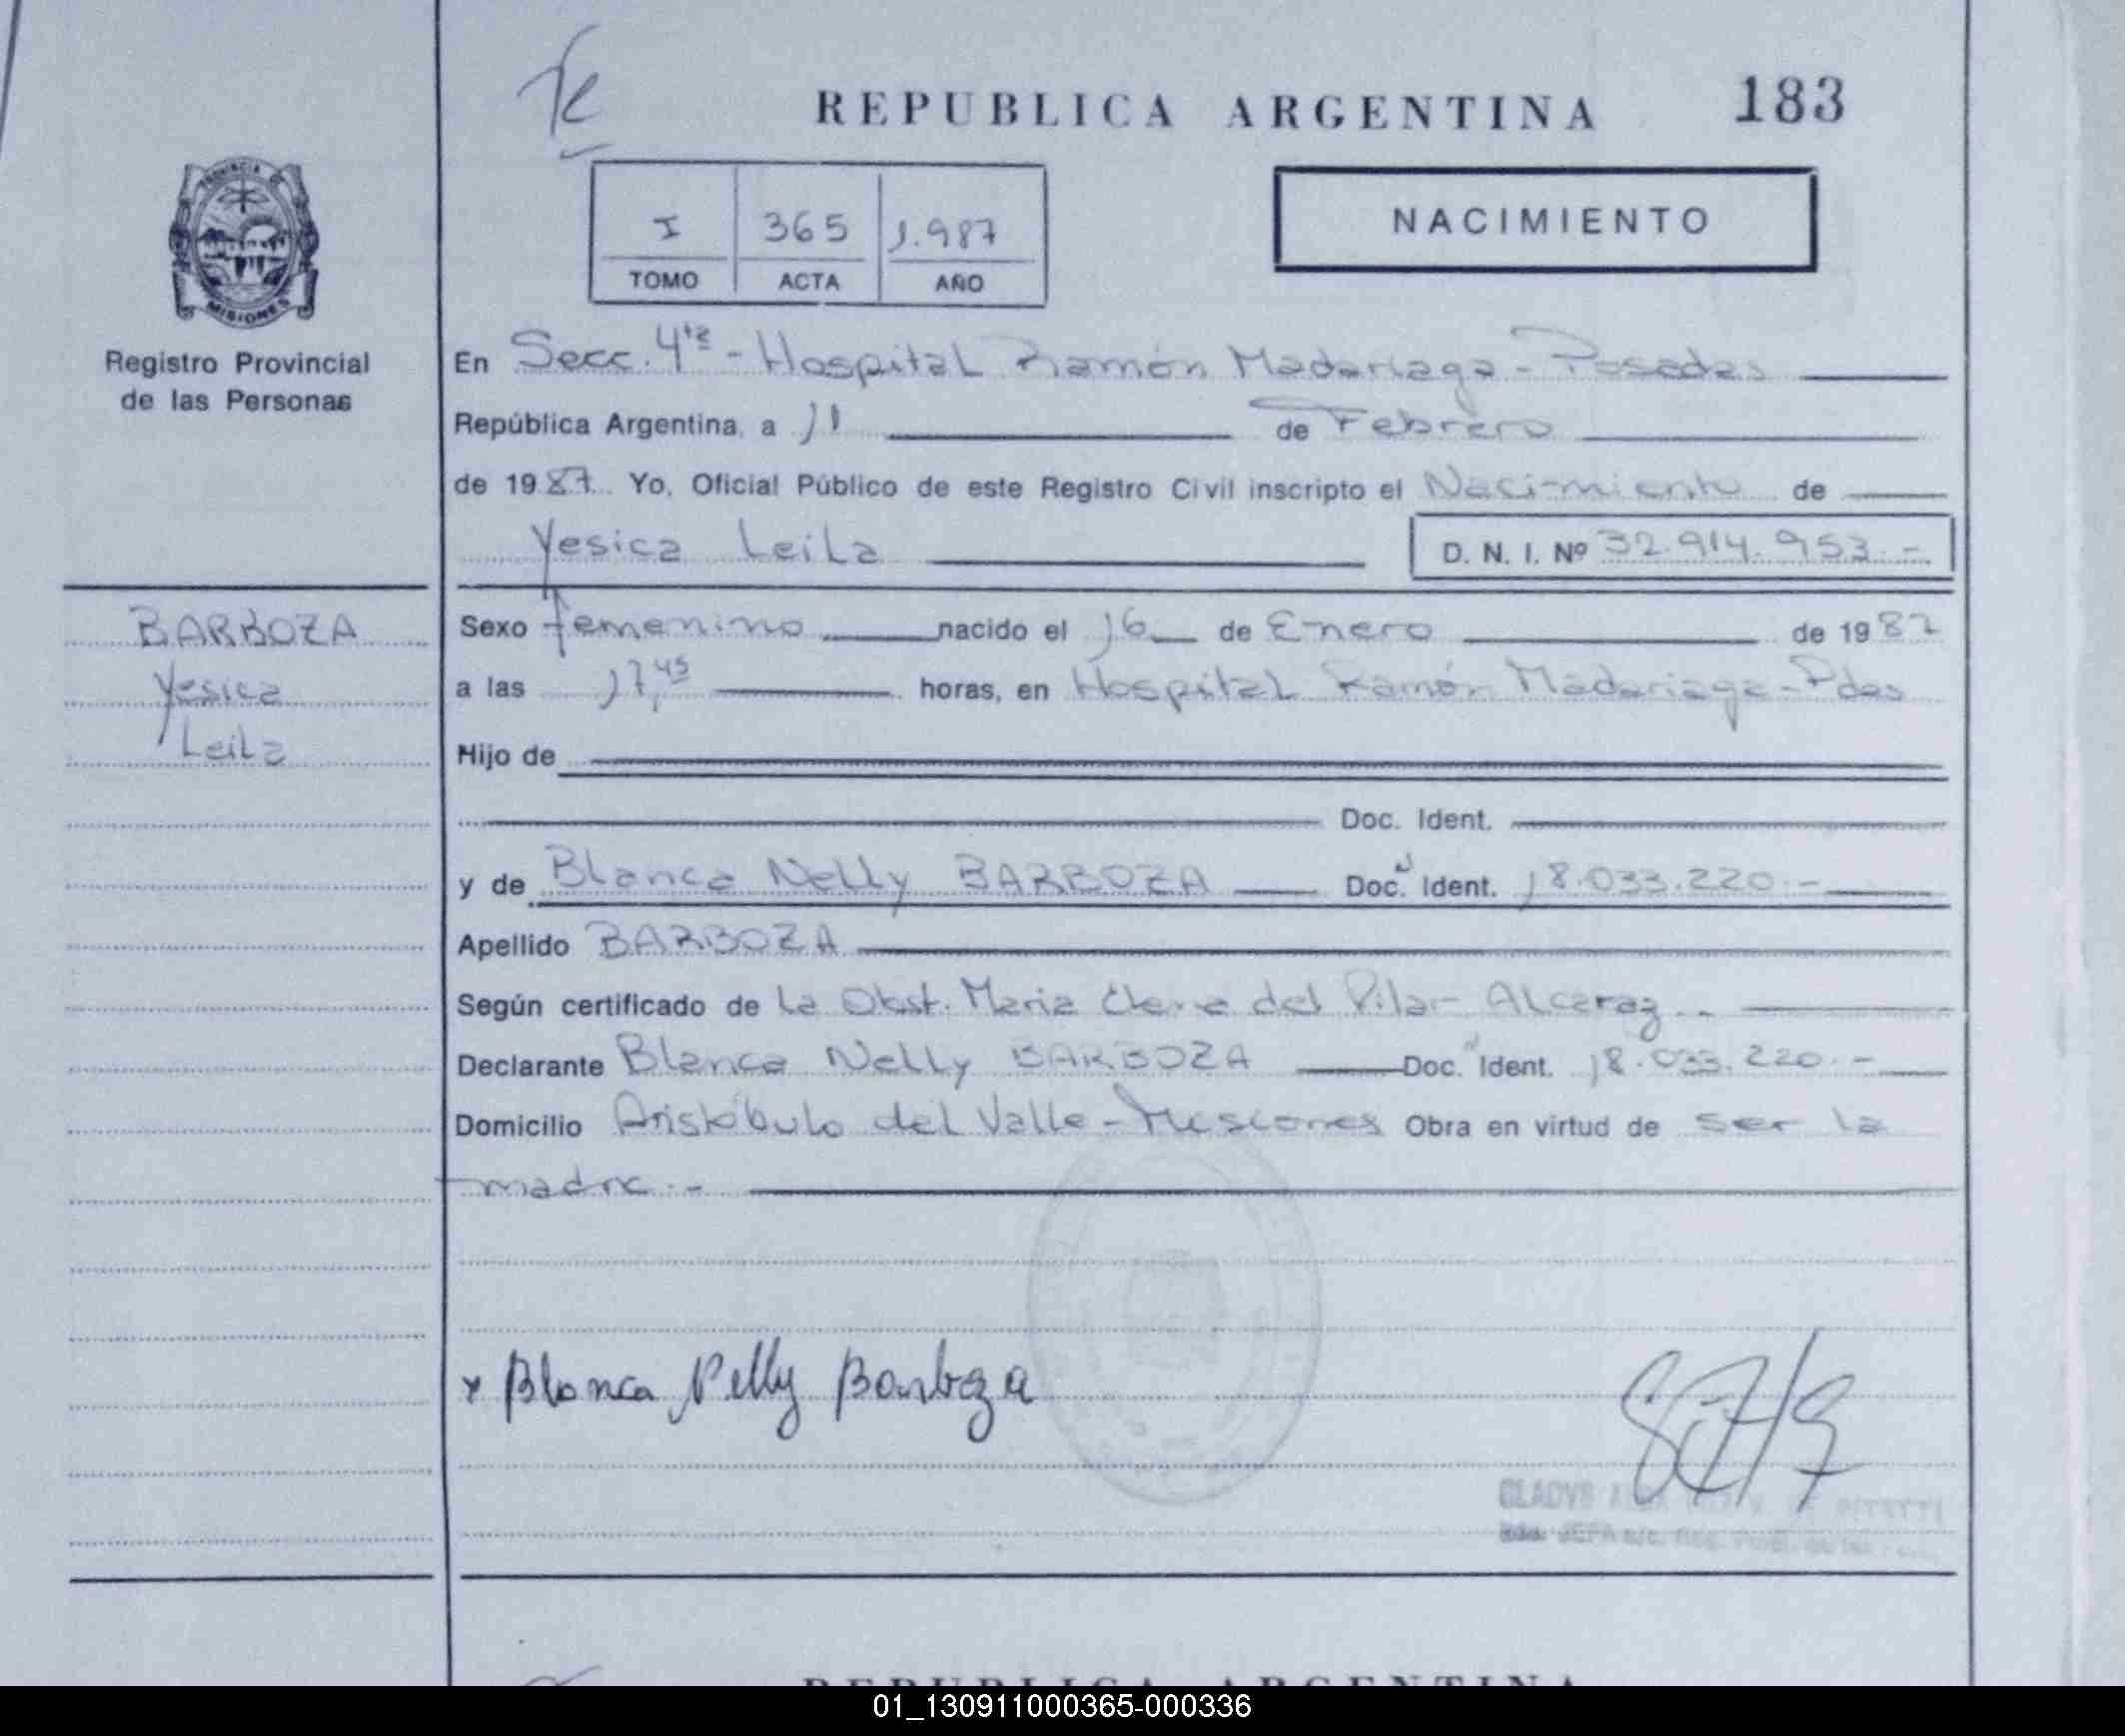 REPUBLICA ARGENTINA 183
NACIMIENTO
I 365 1.987
TOMO ACTA AÑO
PROVINCIA DE
MISIONES
Registro Provincial
de las Personas
En Secc. 4ta - Hospital Ramón Madariaga - Posadas
República Argentina, a 11 de Febrero
de 1987 Yo, Oficial Público de este Registro Civil inscripto el Nacimiento de
Yesica Leila D. N. I. Nº 32.914.953.-
BARBOZA
Yesica
Leila
Sexo femenino nacido el 16 de Enero de 1987
a las 17,45 horas, en Hospital Ramón Madariaga - Pdas
Hijo de
Doc. Ident.
y de Blanca Nelly BARBOZA Doc. Ident. 18.033.220.-
Apellido BARBOZA
Según certificado de la Obst. Maria Elena del Pilar Alcaraz.-
Declarante Blanca Nelly BARBOZA Doc. Ident. 18.033.220.-
Domicilio Aristóbulo del Valle - Misiones Obra en virtud de ser la
madre.-
x Blanca Nelly Barboza
GLADYS
JEFA
REPUBLICA ARGENTINA
01_130911000365-000336